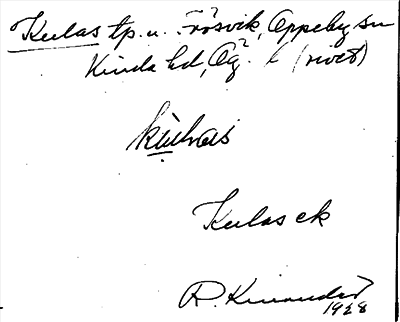 Kulas tp. u. Frösvik, Oppeby sn
Kinda hd, Ög. (rivet)
kulnas
Kulas ek
R. Kinander
1928